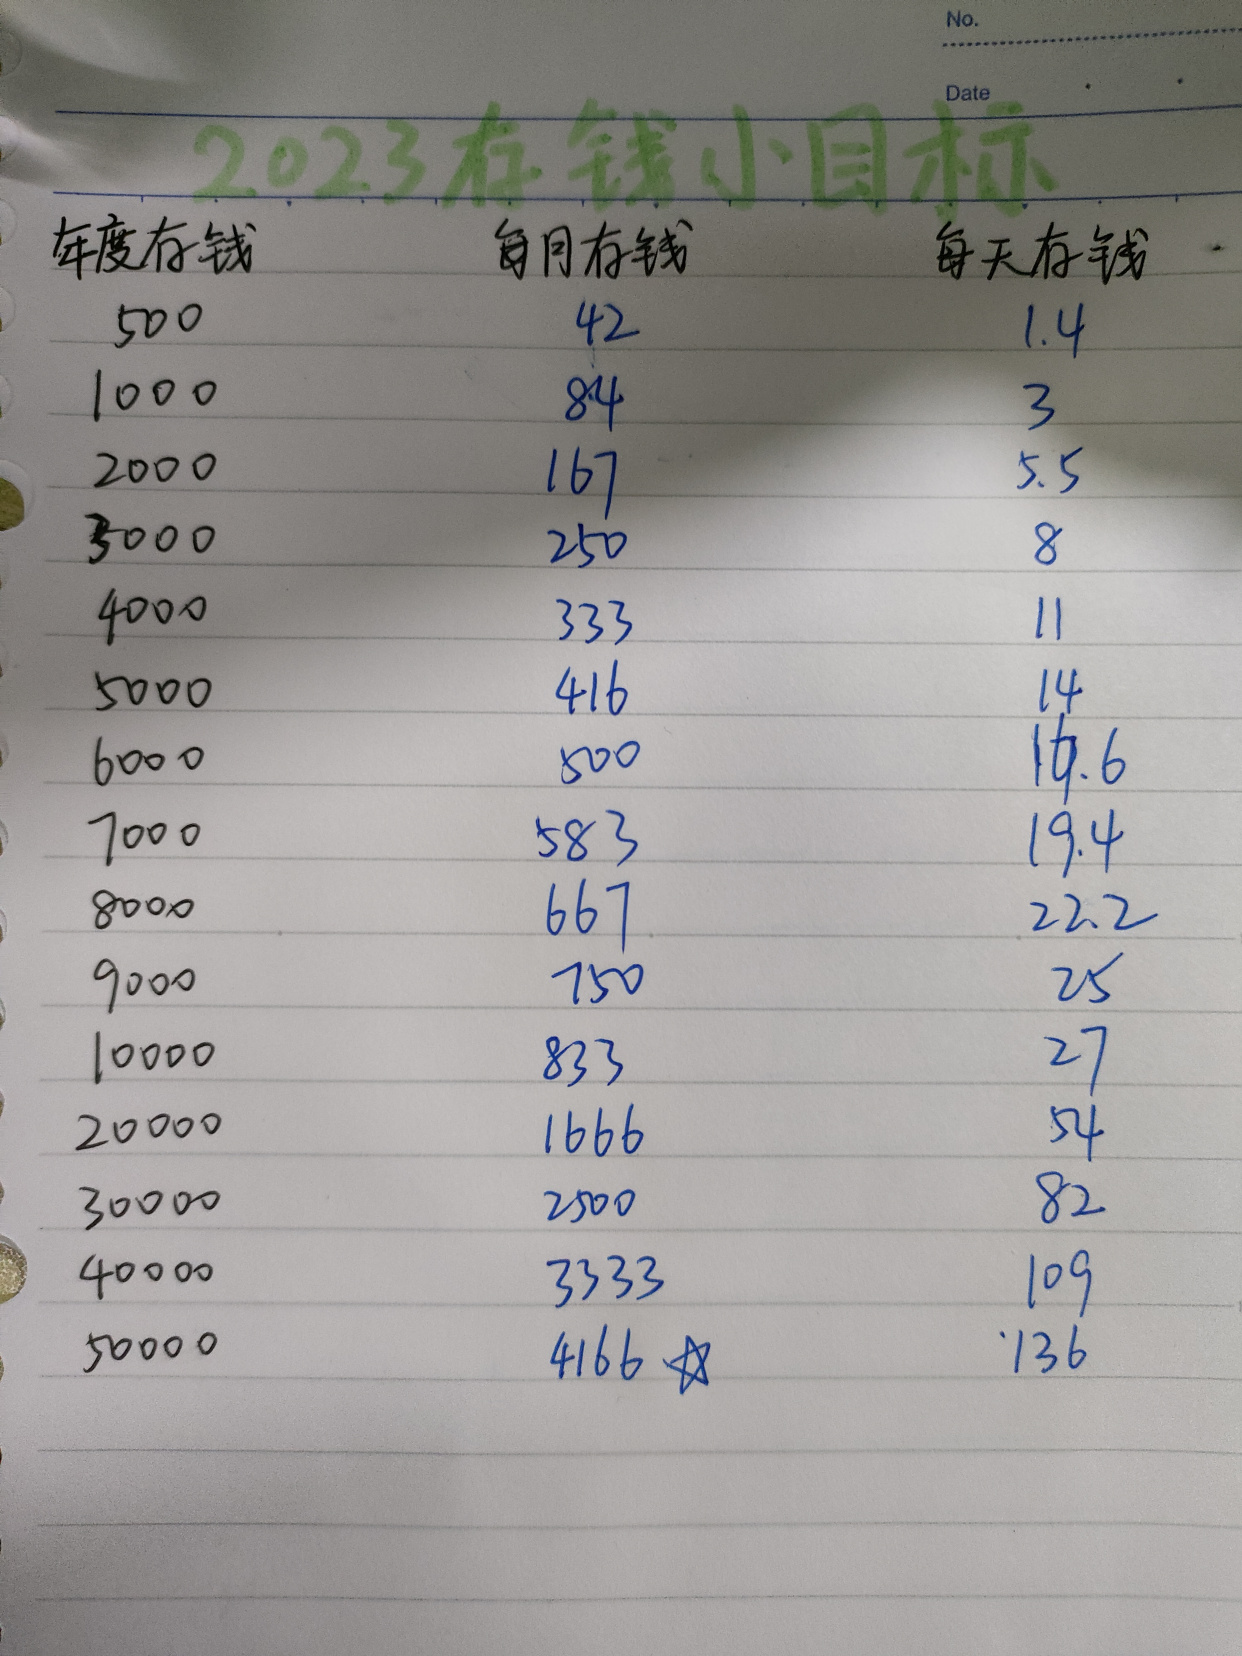 No.
Date
2023存钱小目标
年度存钱 每月存钱 每天存钱
500 42 1.4
1000 84 3
2000 167 5.5
3000 250 8
4000 333 11
5000 416 14
6000 500 16.6
7000 583 19.4
8000 667 22.2
9000 750 25
10000 833 27
20000 1666 54
30000 2500 82
40000 3333 109
50000 4166 ☆ 136